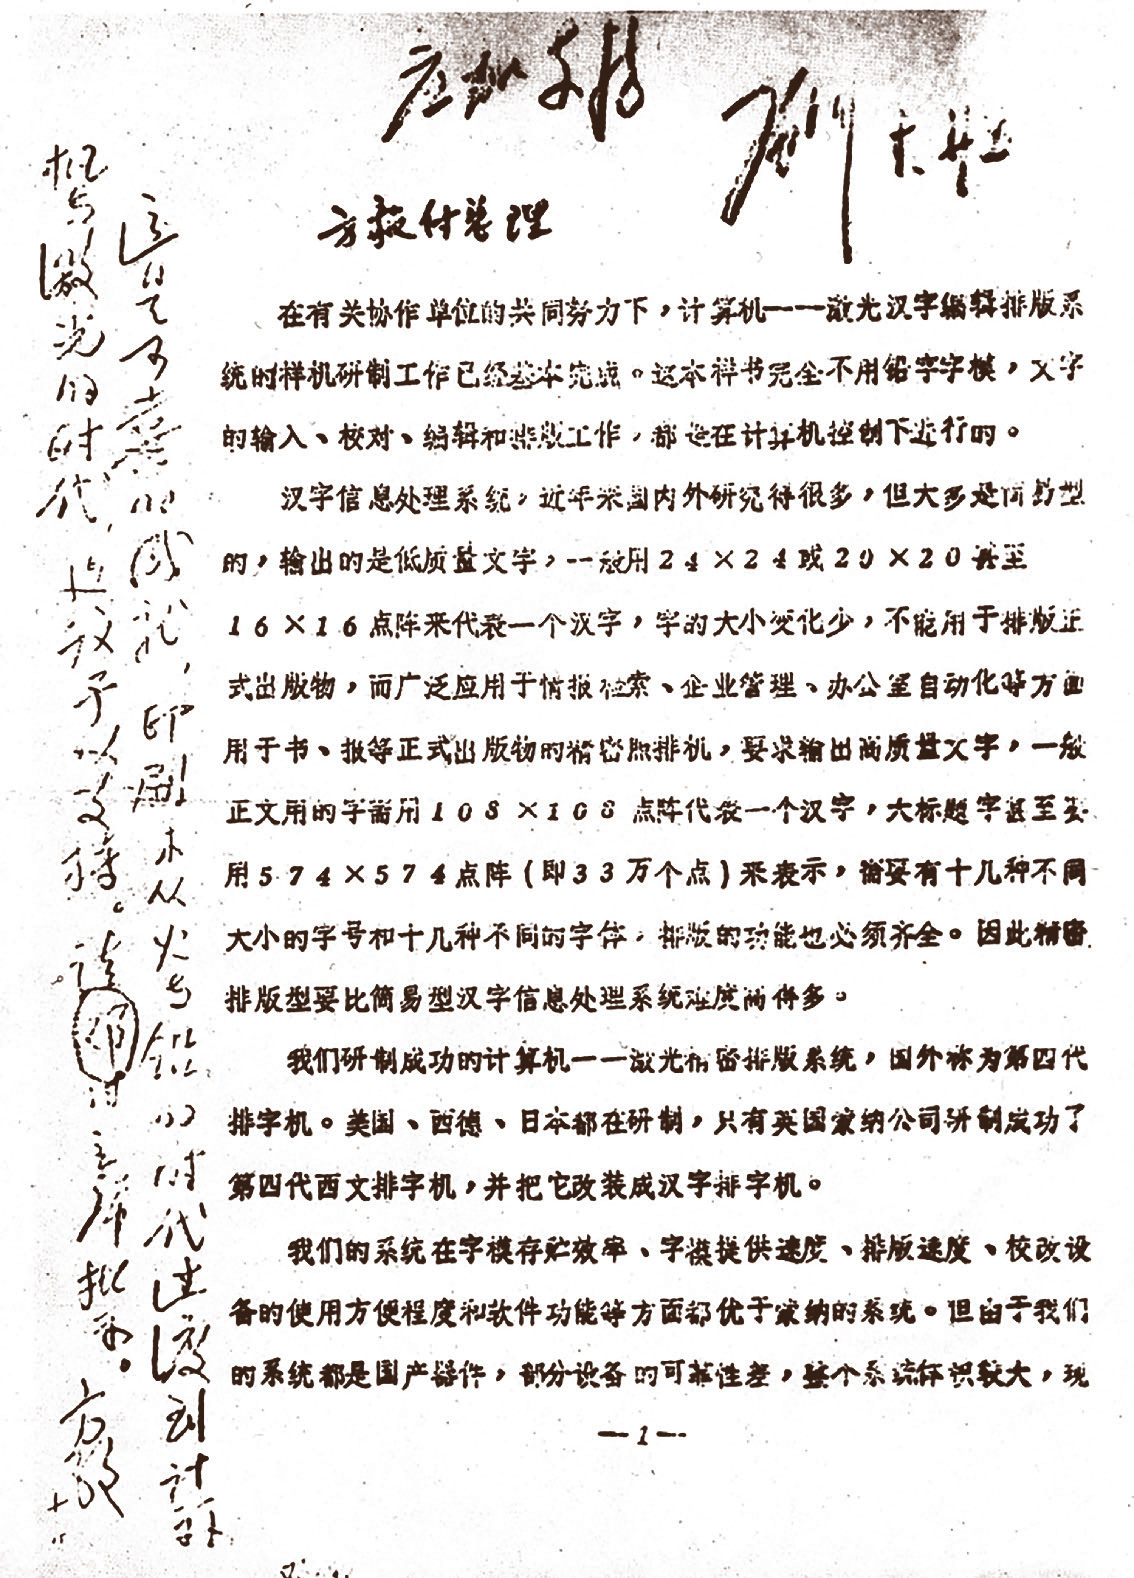 应加支持
邓
方毅付总理
在有关协作单位的共同努力下，计算机——激光汉字编辑排版系
统的样机研制工作已经基本完成。这本样书完全不用铅字字模，文字
的输入、校对、编辑和排版工作，都是在计算机控制下进行的。
汉字信息处理系统，近年来国内外研究得很多，但大多是简易型
的，输出的是低质量文字，一般用24×24或20×20甚至
16×16点阵来代表一个汉字，字的大小变化少，不能用于排版正
式出版物，而广泛应用于情报检索、企业管理、办公室自动化等方面
用于书、报等正式出版物的精密照排机，要求输出高质量文字，一般
正文用的字需用108×108点阵代表一个汉字，大标题字甚至要
用574×574点阵(即33万个点)来表示，需要有十几种不同
大小的字号和十几种不同的字体，排版的功能也必须齐全。因此精密
排版型要比简易型汉字信息处理系统难度高得多。
我们研制成功的计算机——激光精密排版系统，国外称为第四代
排字机。美国、西德、日本都在研制，只有英国蒙纳公司研制成功了
第四代西文排字机，并把它改装成汉字排字机。
我们的系统在字模存贮效率、字模提供速度、排版速度、校改设
备的使用方便程度和软件功能等方面都优于蒙纳的系统。但由于我们
的系统都是国产器件，部分设备的可靠性差，整个系统体积较大，现
—1—
这是可喜的成就，印刷术从火与铅的时代过渡到计算
机与激光的时代，建议予以支持。请邓付主席批示。
方毅